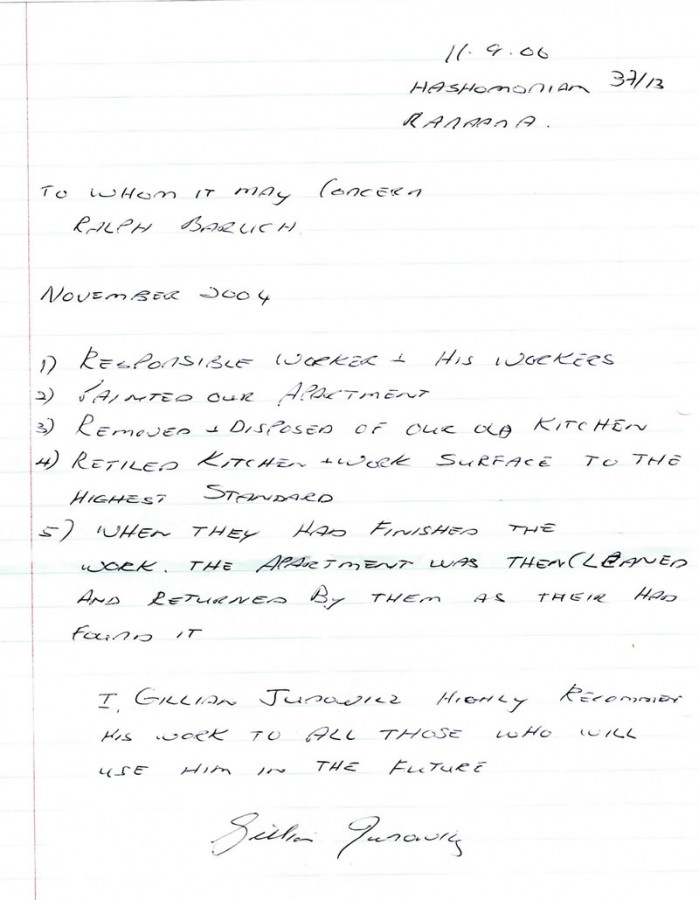 11.9.06
HASHOMONIAM 37/13
RAANANA.
TO WHOM IT MAY CONCERN
RALPH BARUCH.
NOVEMBER 2004
1) RESPONSIBLE WORKER + HIS WORKERS
2) PAINTED OUR APARTMENT
3) REMOVED + DISPOSED OF OUR OLD KITCHEN
4) RETILED KITCHEN + WORK SURFACE TO THE
HIGHEST STANDARD
5) WHEN THEY HAD FINISHED THE
WORK. THE APARTMENT WAS THEN CLEANED
AND RETURNED BY THEM AS THEIR HAD
FOUND IT
I, GILLIAN JUROWICZ HIGHLY RECOMMEN
HIS WORK TO ALL THOSE WHO WILL
USE HIM IN THE FUTURE
Gillian Jurowicz